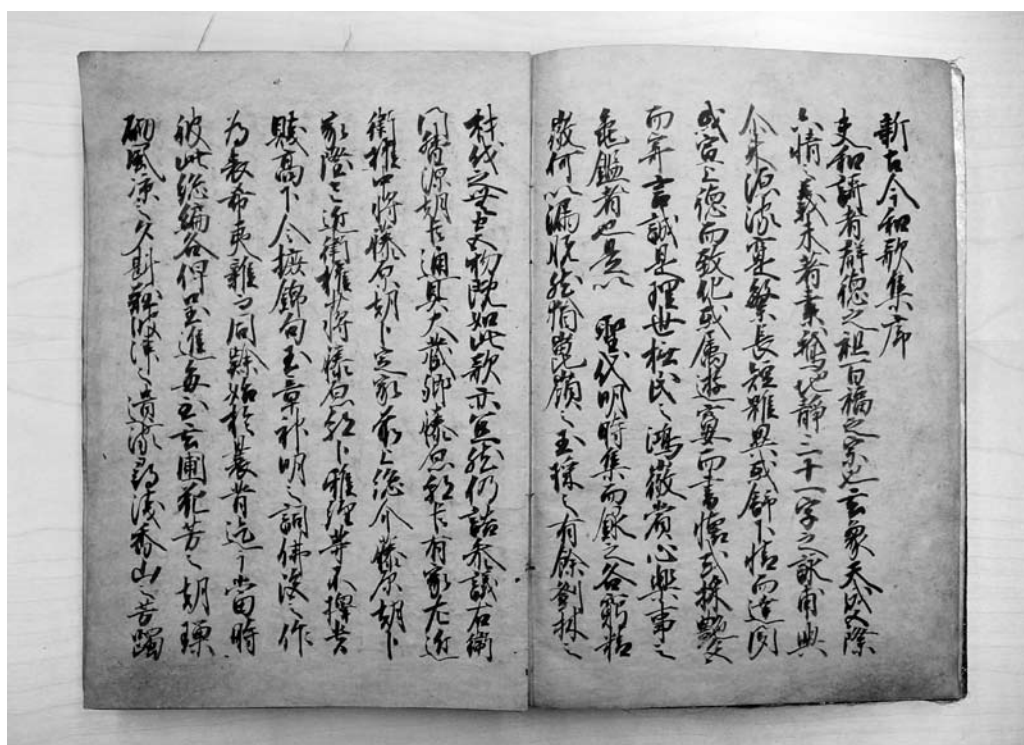 新古今和歌集序
夫和謌者群徳之祖百福之宗也玄象天成五際
六情之義未著素鵞地静三十一字之詠甫興
今来源流寔繁長短雖異或舒下情而達聞
或宣上徳而致化或属遊宴而書懐或採艶色
而寄言誠是理世撫民之鴻徽賞心樂事之
亀鑑者也是以 聖代明時集而録之各窮精
微何以漏脱然猶崑嶺之玉採之有餘鄧林之
材伐之無尽物既如此歌亦宜然仍詔参議右衛
門督源朝臣通具大蔵卿藤原朝臣有家左近
衛権中将藤原朝臣定家前上総介藤原朝臣
家隆左近衛権少将藤原朝臣雅経等不擇貴
賤高下令摭錦句玉章神明之詞佛陀之作
為表希夷雑而同隷始於曩昔迄于當時
彼此総編各俾呈進毎至玄圃花芳之朝璅
砌風凉之夕斟難波津之遺流尋浅香山之芳躅